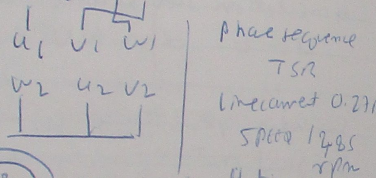 U1 V1 W1
W2 U2 V2
Phase sequence
TSR
Line current 0.271
SPEED 1485
rpm